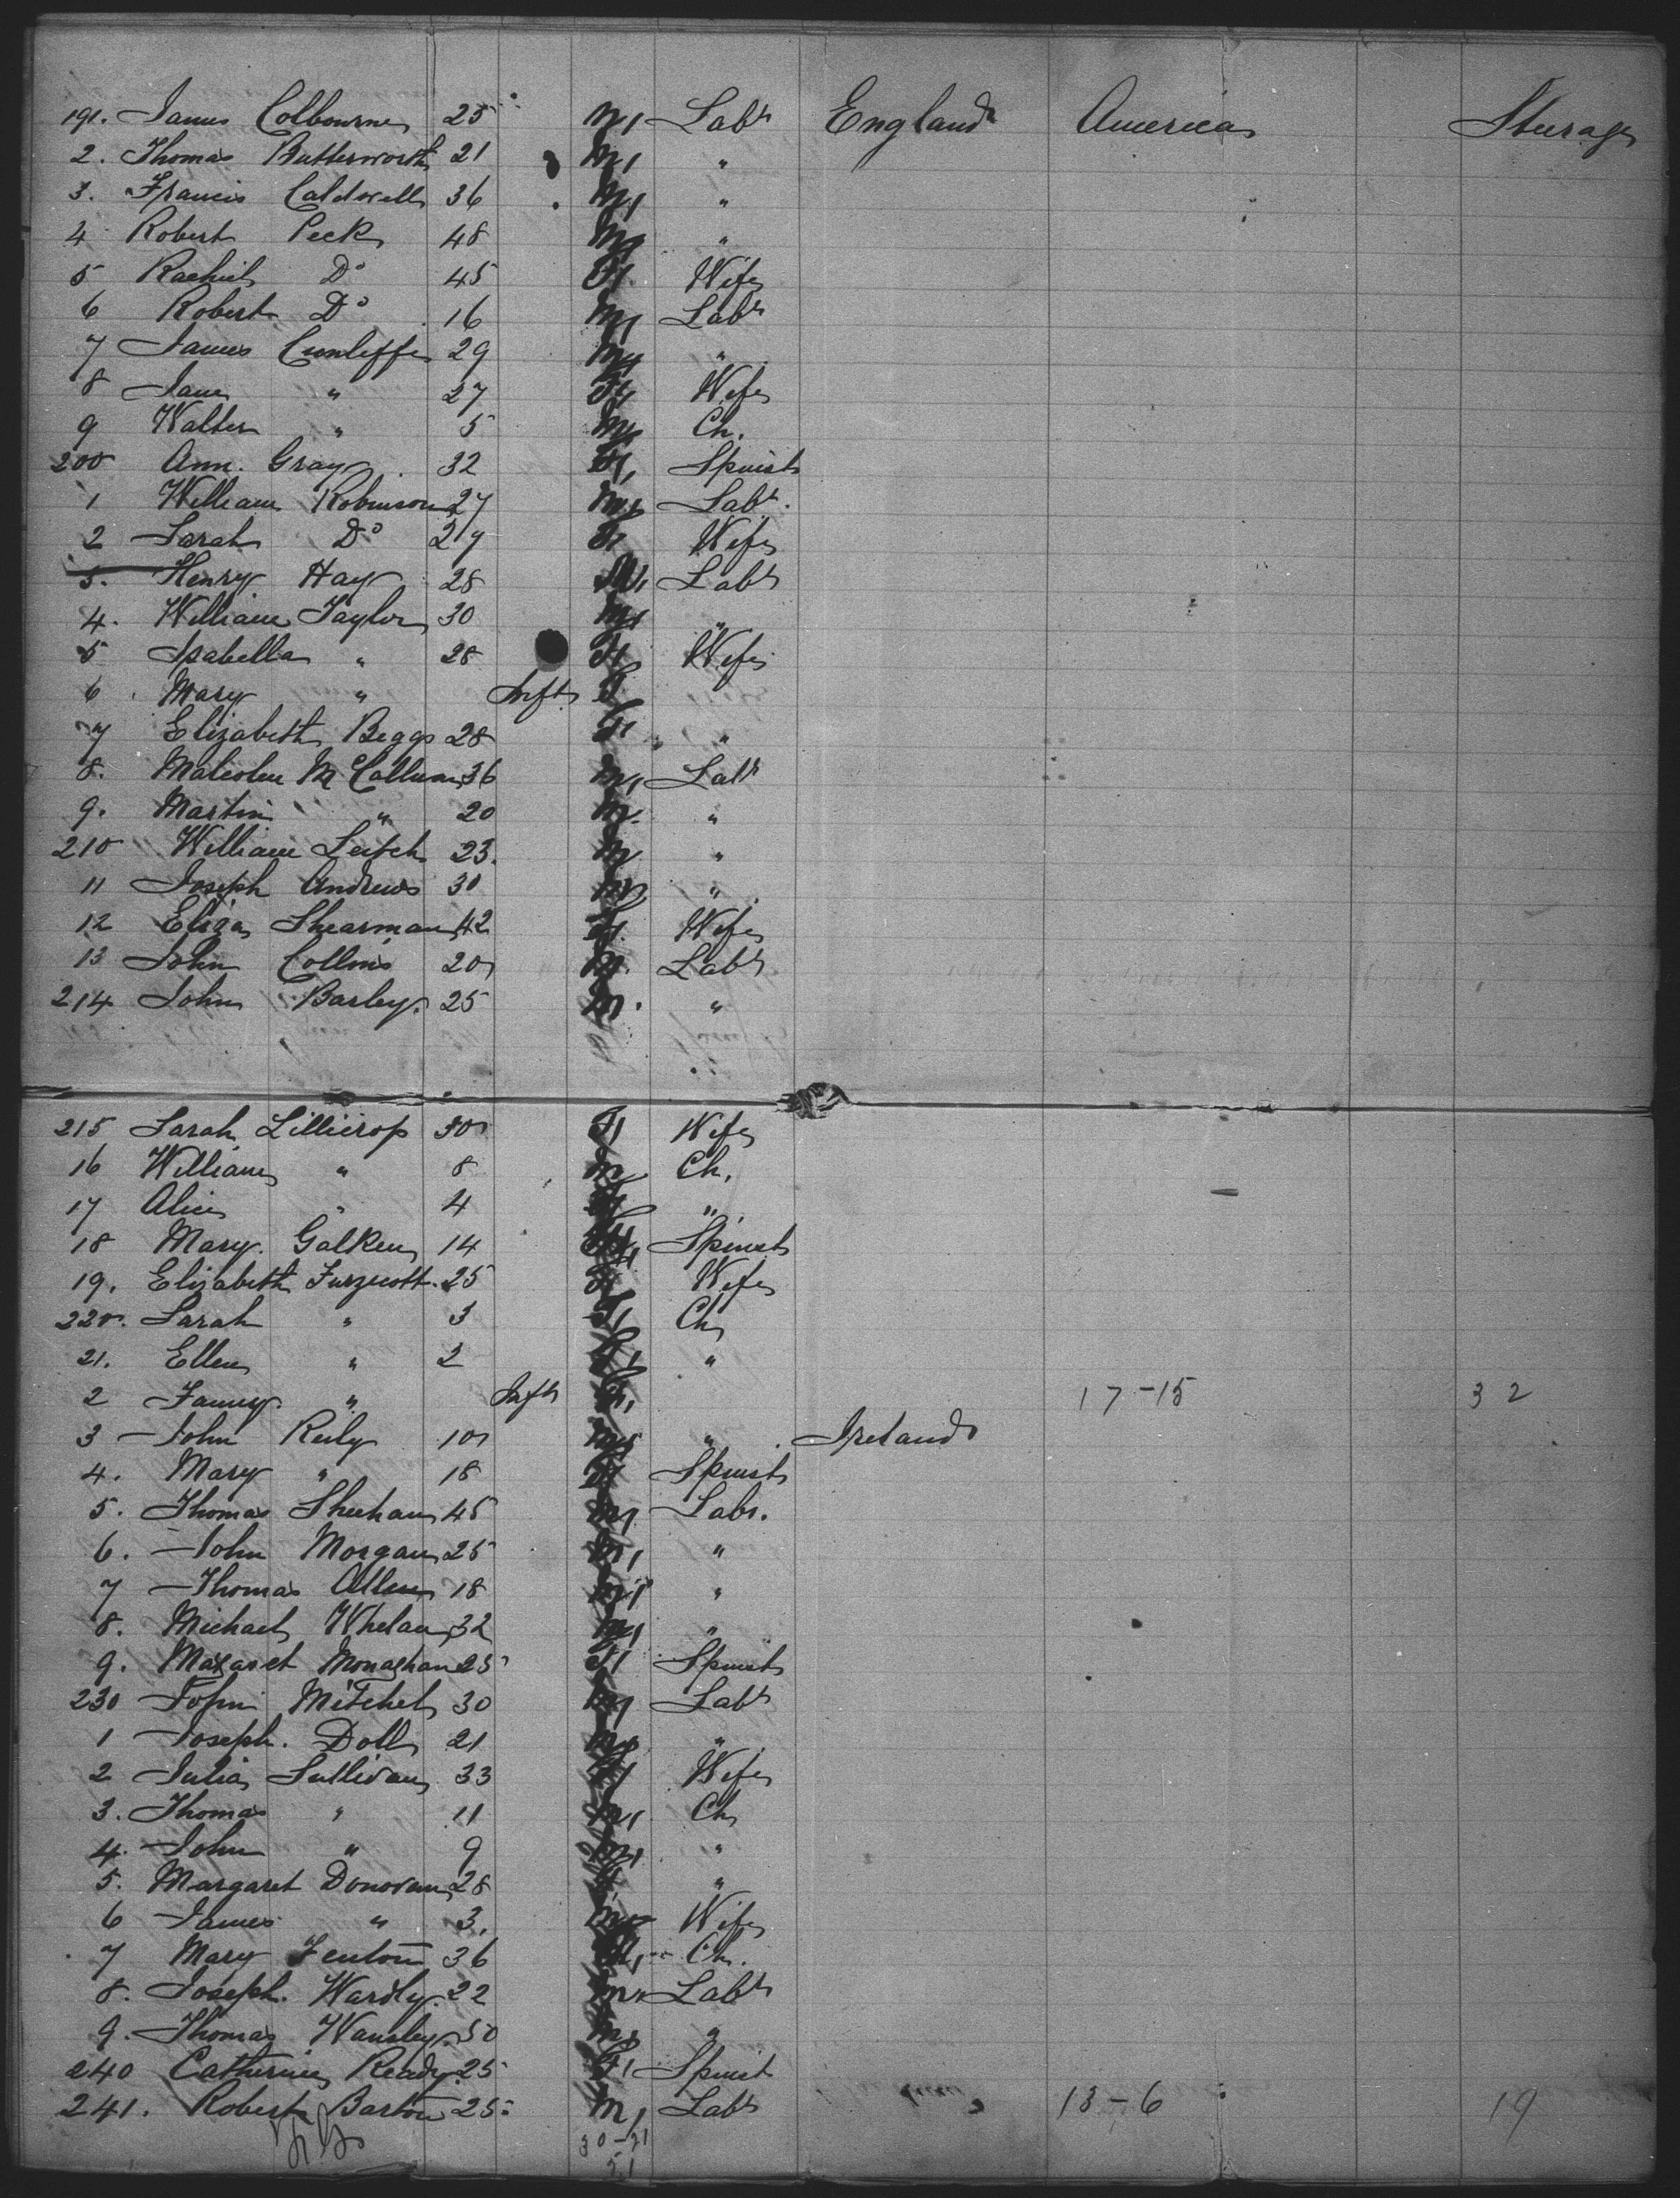 191. James Colbourne 25 M Labr England America Steerage
2. Thomas Butterworth 21 M "
3. Francis Caldwell 36 M "
4 Robert Peck 48 M "
5 Rachiel Do 45 F Wife
6 Robert Do 16 M Labr
7 James Cunliffe 29 M "
8 Jane " 27 F Wife
9 Walter " 5 M Ch.
200 Ann. Gray 32 F Spinst
1 William Robinson 27 M Labr.
2 Sarah Do 27 F Wife
3. Henry Hay 28 M Labr
4. William Taylor 30 M "
5 Isabella " 28 F Wife
6. Mary " Inft F
7 Elizabeth Beggs 28 F "
8. Malcolm McCallum 36 M Labr
9. Martin " 20 M. "
210 William Leitch 23. M "
11 Joseph Andrews 30 M "
12 Eliza Shearman 42 F. Wife
13 John Collins 20 M. Labr
214 John Barley. 25 M. "
215 Sarah Lillicrop 30 F Wife
16 William " 8 M Ch.
17 Alice " 4 F "
18 Mary. Galken 14 F Spinst
19. Elizabeth Furzecott. 25 F Wife
220. Sarah " 3 F Ch
21. Ellen " 2 F "
2 Fanny " Inft F 17-15 32
3 John Reily 10 M " Ireland
4. Mary " 18 F Spinst
5. Thomas Sheehan 45 M Labr.
6. John Morgan 25 M "
7 Thomas Allen 18 M "
8. Michael Whelan 32 M "
9. Magaret Monaghan 25 F Spinst
230 John Mitchel 30 M Labr
1 Joseph. Doll 21 M "
2 Julia Sullivan 33 F Wife
3. Thomas " 11 M Ch
4. John " 9 M "
5. Margaret Donovan 28 F "
6 James " 3. M Wife
7 Mary Fenton 36 Ch.
8. Joseph. Wardly. 22 M Labr
9. Thomas Wansley 50 M "
240 Catherine Ready. 25 F Spinst
241. Robert Barton 25 M Labr 13-6 19
30-21
51